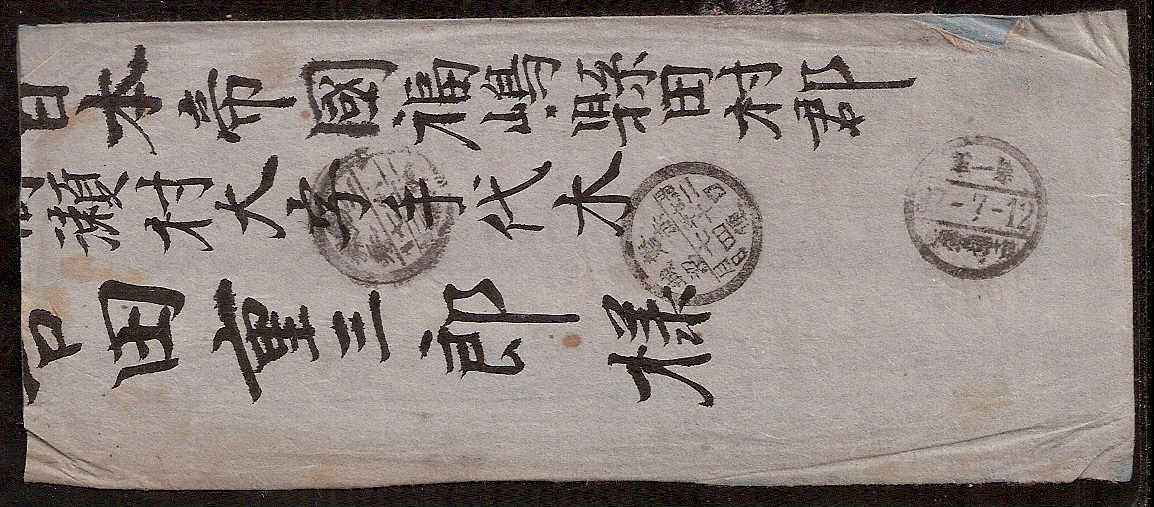 日本帝國福嶋縣田村郡
高瀬村大字手代木
戸田重三郎様
-7-12